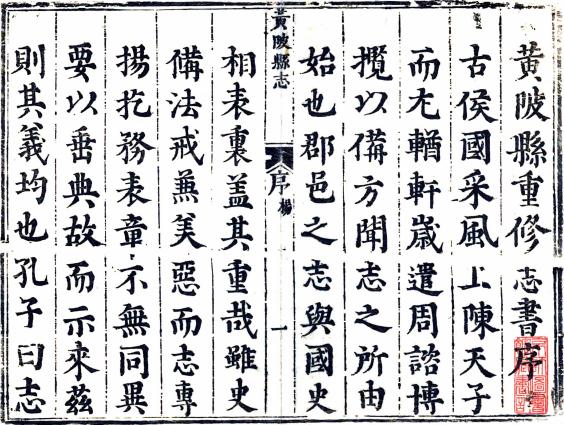 黃陂縣重修志書序
古侯國采風上陳天子
而尤輶軒歲遣周諮博
攬以備方聞志之所由
始也郡邑之志與國史
黃陂縣志 序 楊 一
相表裏盖其重哉雖史
備法戒兼美惡而志專
揚扢務表章不無同異
要以垂典故而示來茲
則其義均也孔子曰志